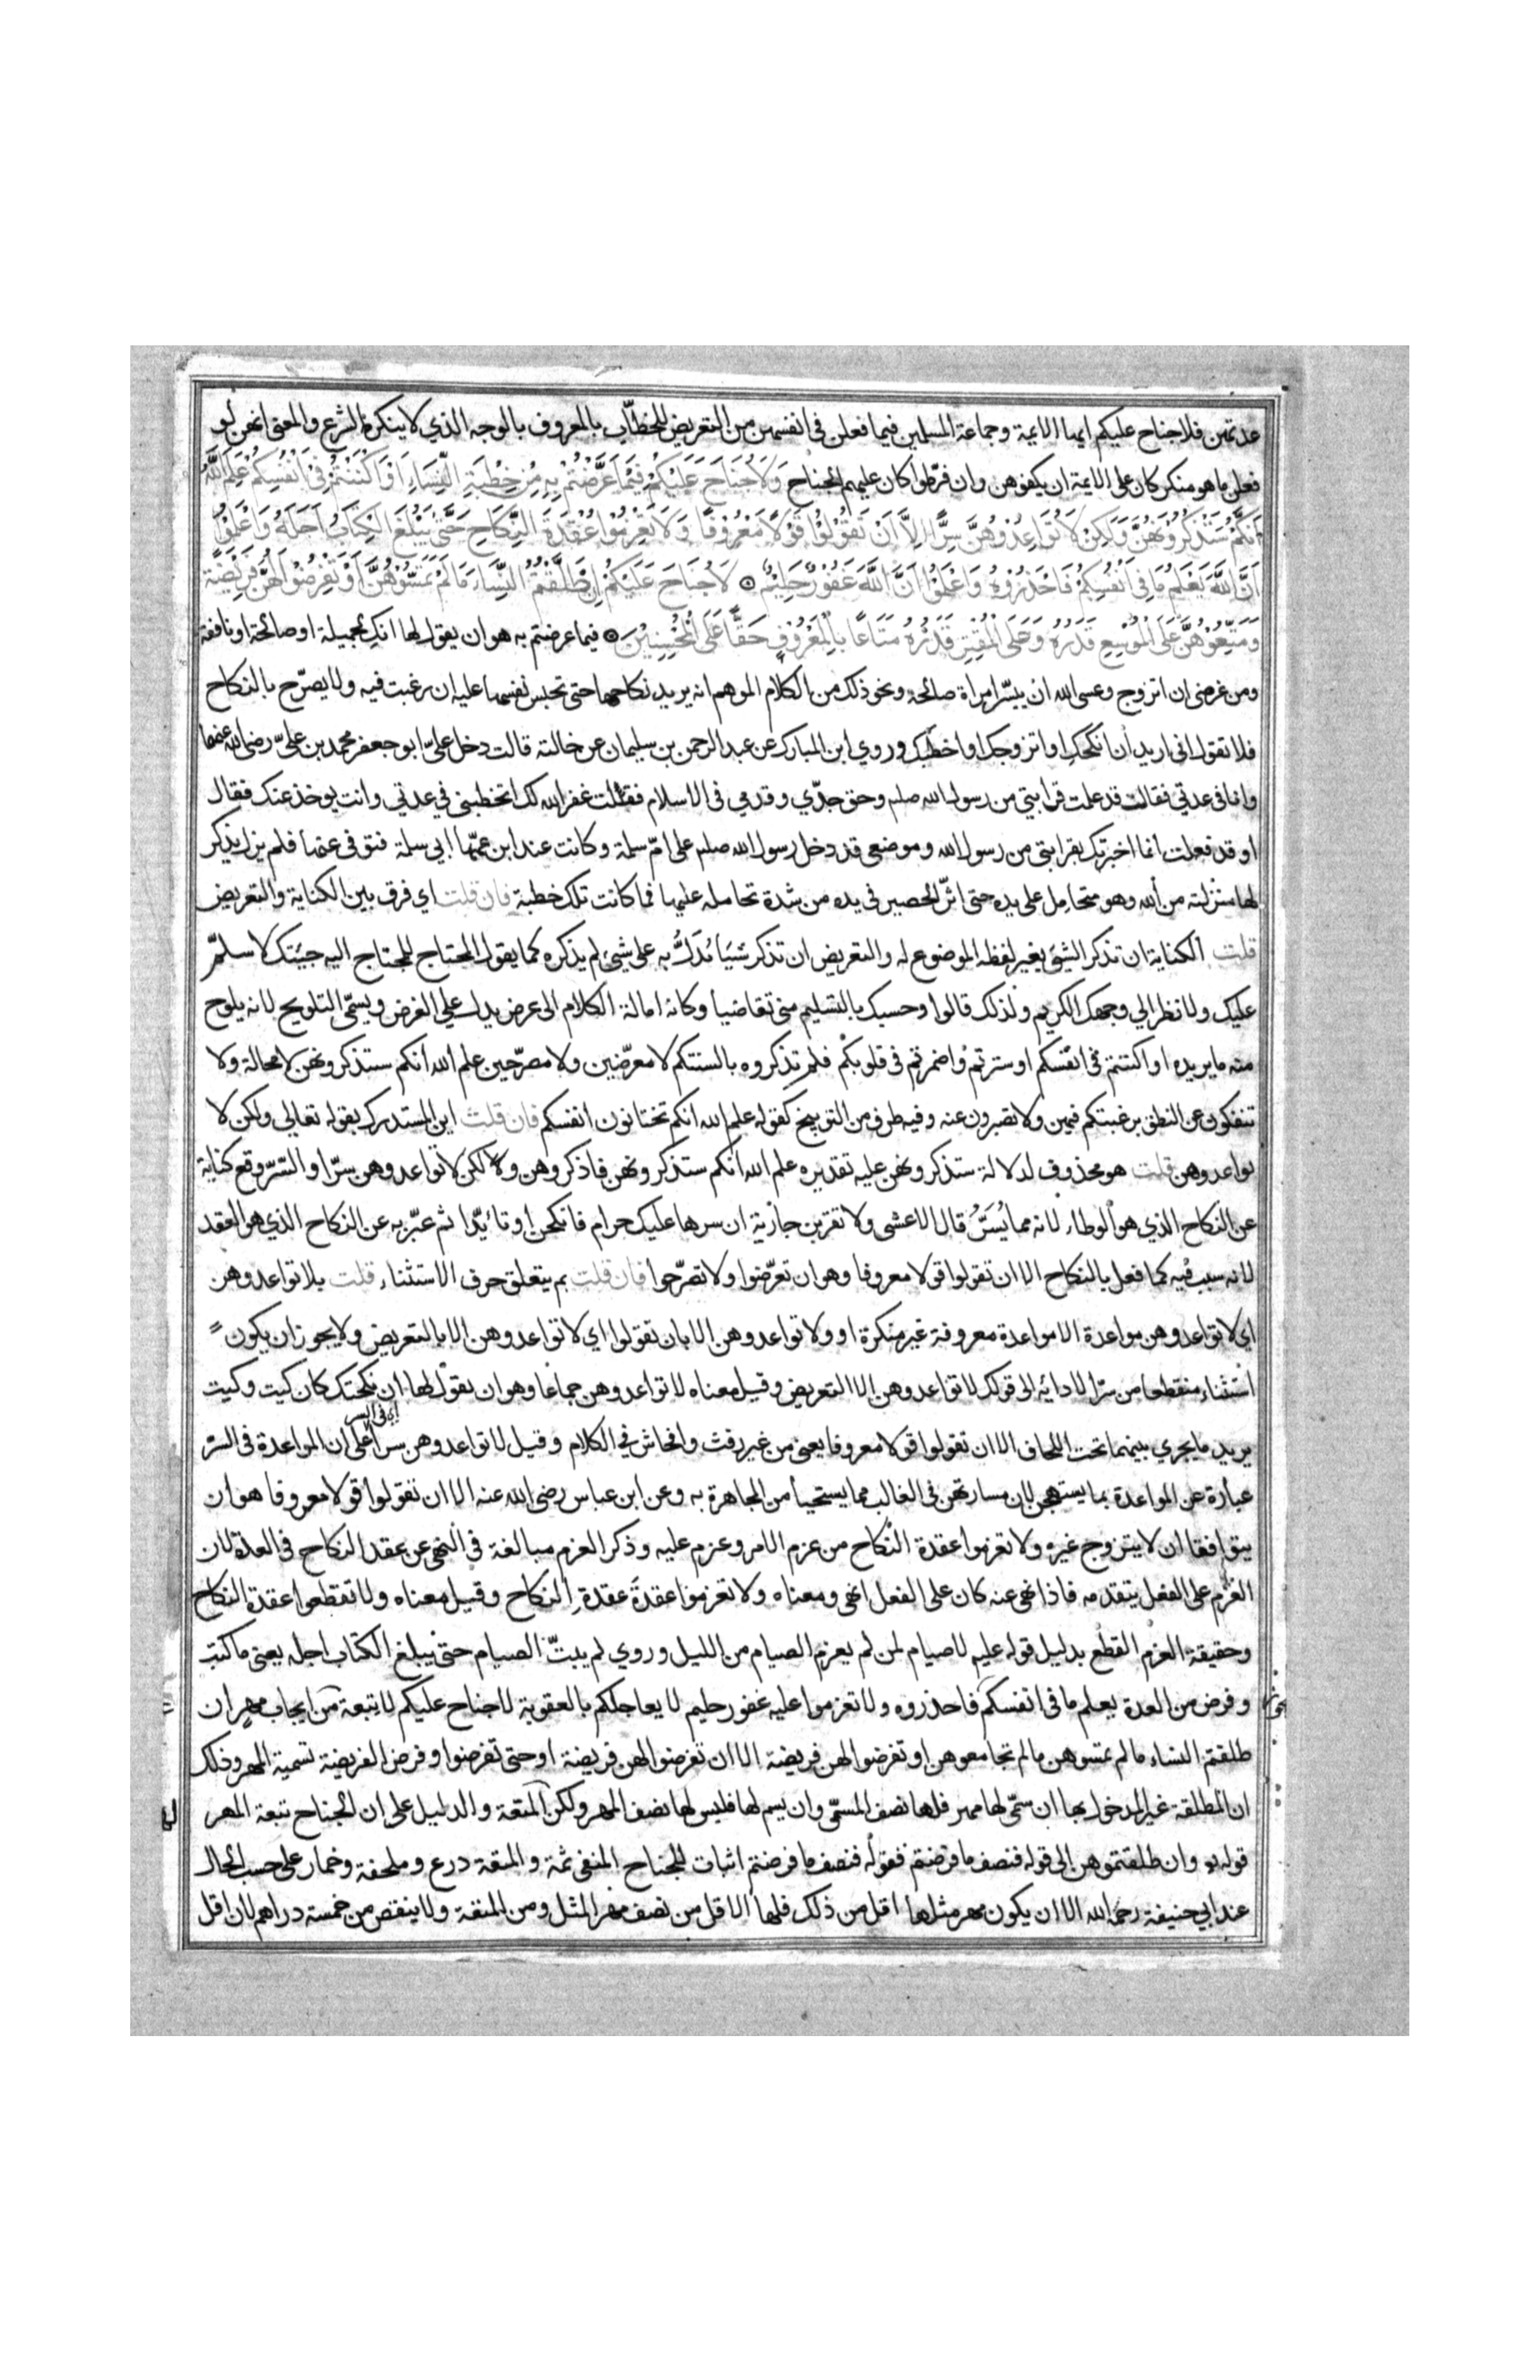 عدتهن فلا جناح عليكم ايها الايمة وجماعة المسلمين فيما فعلن في انفسهن من التعريض للخطاب بالمعروف بالوجه الذي لا ينكره الشرع والمعنى انهن لو
فعلن ما هو منكر كان على الايمة ان يكفوهن وان فرطوا كان عليهم الجناح وَلَا جُنَاحَ عَلَيْكُمْ فِيمَا عَرَّضْتُمْ بِهِ مِنْ خِطْبَةِ النِّسَاءِ اَوْ اَكْنَنْتُمْ فِي اَنْفُسِكُمْ عَلِمَ اللّٰهُ
اَنَّكُمْ سَتَذْكُرُونَهُنَّ وَلٰكِنْ لَا تُوَاعِدُوهُنَّ سِرًّا اِلَّا اَنْ تَقُولُوا قَوْلًا مَعْرُوفًا وَلَا تَعْزِمُوا عُقْدَةَ النِّكَاحِ حَتّٰى يَبْلُغَ الْكِتَابُ اَجَلَهُ وَاعْلَمُوا
اَنَّ اللّٰهَ يَعْلَمُ مَا فِي اَنْفُسِكُمْ فَاحْذَرُوهُ وَاعْلَمُوا اَنَّ اللّٰهَ غَفُورٌ حَلِيمٌ ۝ لَا جُنَاحَ عَلَيْكُمْ اِنْ طَلَّقْتُمُ النِّسَاءَ مَا لَمْ تَمَسُّوهُنَّ اَوْ تَفْرِضُوا لَهُنَّ فَرِيضَةً
وَمَتِّعُوهُنَّ عَلَى الْمُوسِعِ قَدَرُهُ وَعَلَى الْمُقْتِرِ قَدَرُهُ مَتَاعًا بِالْمَعْرُوفِ حَقًّا عَلَى الْمُحْسِنِينَ ۝ فيما عرضتم به هو ان يقول لها انك لجميلة او صالحة او نافقة
ومن غرضي ان اتزوج وعسى الله ان ييسر امراة صالحة ونحو ذلك من الكلام الموهم انه يريد نكاحها حتى تحبس نفسها عليه ان رغبت فيه ولا يصرح بالنكاح
فلا تقول اني اريد ان انكحك او اتزوجك او اخطبك وروي ابن المبارك عن عبد الرحمن بن سليمان عن خالته قالت دخل علي ابو جعفر محمد بن علي رضي الله عنهما
وانا في عدتي فقالت قد علمت قرابتي من رسول الله صلم وحق جدي وقدمي في الاسلام فقلت غفر الله لك اتخطبني في عدتي وانت يوخذ عنك فقال
او قد فعلت انما اخبرتك بقرابتي من رسول الله وموضعي قد دخل رسول الله صلم على ام سلمة وكانت عند ابن عمها ابي سلمة فتوفى عنها فلم يزل يذكر
لها منزلته من الله وهو متحامل على يده حتى اثر الحصير في يده من شدة تحامله عليها فما كانت تلك خطبة فان قلت اي فرق بين الكناية والتعريض
قلت الكناية ان تذكر الشيئ بغير لفظه الموضوع له والتعريض ان تذكر شيئا تدل به على شيئ لم يذكره كما يقول المحتاج للمحتاج اليه جيتك لاسلم
عليك ولانظر الي وجهك الكريم ولذلك قالوا وحسبك بالتسليم مني تقاضيا وكانه امالة الكلام الى عرض يدل علي الغرض ويسمى التلويح لانه يلوح
منه ما يريده او اكننتم في انفسكم او سترتم واضمرتم في قلوبكم فلم تذكروه بالسنتكم لا معرضين ولا مصرحين علم الله انكم ستذكرونهن لا محالة ولا
تنفكون عن النطق برغبتكم فيهن ولا تصبرون عنه وفيه طرف من التوبيخ كقوله علم الله انكم تختانون انفسكم فان قلت اين المستدرك بقوله تعالي ولكن لا
تواعدوهن قلت هو محذوف لدلالة ستذكرونهن عليه تقديره علم الله انكم ستذكرونهن فاذكروهن ولكن لا تواعدوهن سرا والسر وقع كناية
عن النكاح الذي هو الوطاء لانه مما يُسَرُّ قال الاعشى ولا تقربن جارية ان سرها عليك حرام فانكحن او تابدا ثم عبر به عن النكاح الذي هو العقد
لانه سبب فيه كما فعل بالنكاح الا ان تقولوا قولا معروفا وهو ان تعرضوا ولا تصرحوا فان قلت بم يتعلق حرف الاستثناء قلت بلا تواعدوهن
اي لا تواعدوهن مواعدة الا مواعدة معروفة غير منكرة او ولا تواعدوهن الا بان تقولوا اي لا تواعدوهن الا بالتعريض ولا يجوز ان يكون
استثناء منقطعا من سرا لادائه الى قولك لا تواعدوهن الا التعريض وقيل معناه لا تواعدوهن جماعا وهو ان يقول لها ان نكحتك كان كيت وكيت
يريد ما يجري بينهما تحت اللحاف الا ان تقولوا قولا معروفا يعني من غير رفث وافحاش في الكلام وقيل لا تواعدوهن سرا اي في السر على ان المواعدة في السر
عبارة عن المواعدة بما يستهجن لان مسارتهن في الغالب مما يستحيا من المجاهرة به وعن ابن عباس رضي الله عنه الا ان تقولوا قولا معروفا هو ان
يتوافقا ان لا يتزوج غيره ولا تعزموا عقدة النكاح من عزم الامر وعزم عليه وذكر العزم مبالغة في النهي عن عقد النكاح في العدة لان
العزم على الفعل يتقدمه فاذا نهي عنه كان على الفعل انهى ومعناه ولا تعزموا عقدَ عقدة النكاح وقيل معناه ولا تقطعوا عقدة النكاح
وحقيقة العزم القطع بدليل قوله عليم لا صيام لمن لم يعزم الصيام من الليل وروي لم يبت الصيام حتى يبلغ الكتاب اجله يعني ما كتب
وفرض من العدة يعلم ما في انفسكم فاحذروه ولا تعزموا عليه غفور حليم لا يعاجلكم بالعقوبة لا جناح عليكم لا تبعة من ايجاب مهر ان
طلقتم النساء ما لم تمسوهن ما لم تجامعوهن او تفرضوا لهن فريضة الا ان تفرضوا لهن فريضة او حتى تفرضوا وفرض الفريضة تسمية المهر وذلك
ان المطلقة غير المدخول بها ان سمي لها مهر فلها نصف المسمى وان يسم لها فليس لها نصف المهر ولكن المتعة والدليل على ان الجناح تبعة المهر
قوله وان طلقتموهن الى قوله فنصف ما فرضتم فقوله فنصف ما فرضتم اثبات للجناح المنفي ثمة والمتعة درع وملحفة وخمار على حسب الحال
عند ابي حنيفة رحمه الله الا ان يكون مهر مثلها اقل من ذلك فلها الاقل من نصف مهر المثل ومن المتعة ولا ينقص من خمسة دراهم لان اقل